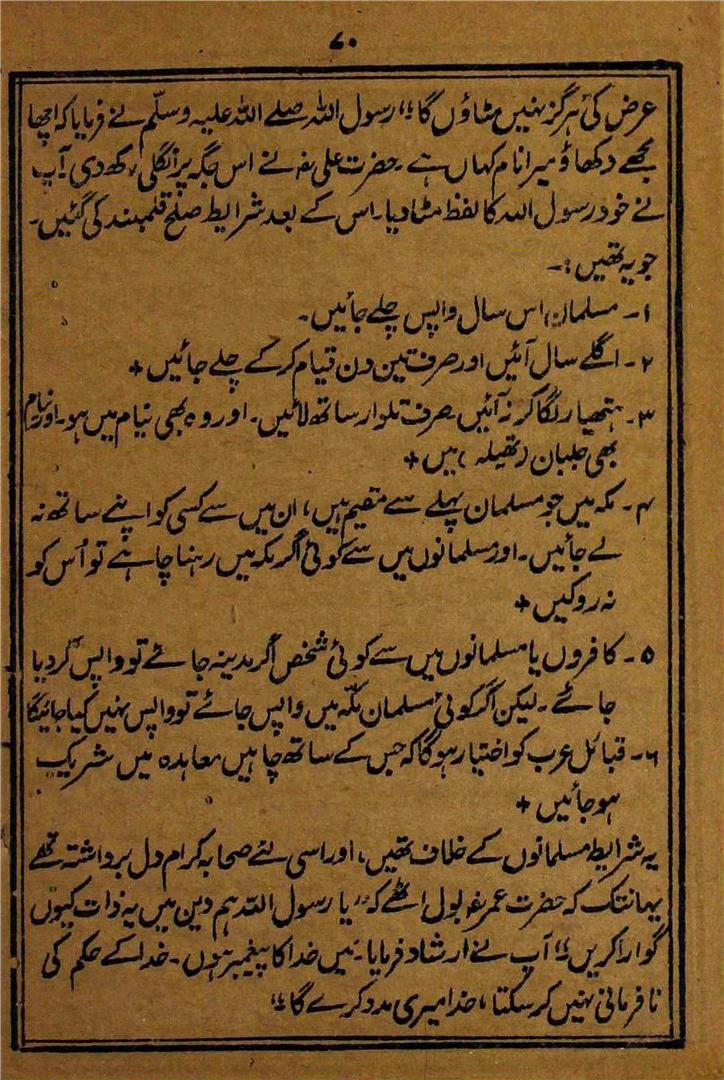 ۷۰
عرض کی ہرگز نہیں مٹاؤں گا“ رسول اللہ صلے اللہ علیہ وسلّم نے فرمایا کہ اچھا
مجھے دکھاؤ میرا نام کہاں ہے۔ حضرت علی رضہ نے اس جگہ پر انگلی رکھدی آپ
نے خود رسول اللہ کا لفظ مٹا دیا۔ اس کے بعد شرایط صلح قلمبند کی گئیں۔
جو یہ تھیں :۔
۱۔ مسلمان اس سال واپس چلے جائیں۔
۲۔ اگلے سال آئیں اور صرف تین دن قیام کرکے چلے جائیں +
۳۔ ہتھیار لگا کر نہ آئیں۔ صرف تلوار ساتھ لائیں۔ اور وہ بھی نیام میں ہو۔ اور نیام
بھی جلبان (تھیلہ) میں +
۴۔ مکہ میں جو مسلمان پہلے سے مقیم ہیں، ان میں سے کسی کو اپنے ساتھ نہ
لے جائیں۔ اور مسلمانوں میں سے کوئی اگر مکہ میں رہنا چاہے تو اُس کو
نہ روکیں +
۵۔ کافروں یا مسلمانوں میں سے کوئی شخص اگر مدینہ جائے تو واپس کر دیا
جائے۔ لیکن اگر کوئی مسلمان مکّہ میں واپس جائے تو واپس نہیں کیا جائیگا
۶۔ قبائل عرب کو اختیار ہوگا کہ جس کے ساتھ چاہیں معاہدہ میں شریک
ہو جائیں +
یہ شرایط مسلمانوں کے خلاف تھیں، اور اسی لئے صحابہ کرام دل برداشتہ تھے
یہانتک کہ حضرت عمر رضہ بول اٹھے کہ ”یا رسول اللہ ہم دین میں یہ ذات کیوں
گوارا کریں“ آپ نے ارشاد فرمایا۔ میں خدا کا پیغمبر ہوں۔ خدا کے حکم کی
نافرمانی نہیں کر سکتا، خدا میری مدد کرے گا“